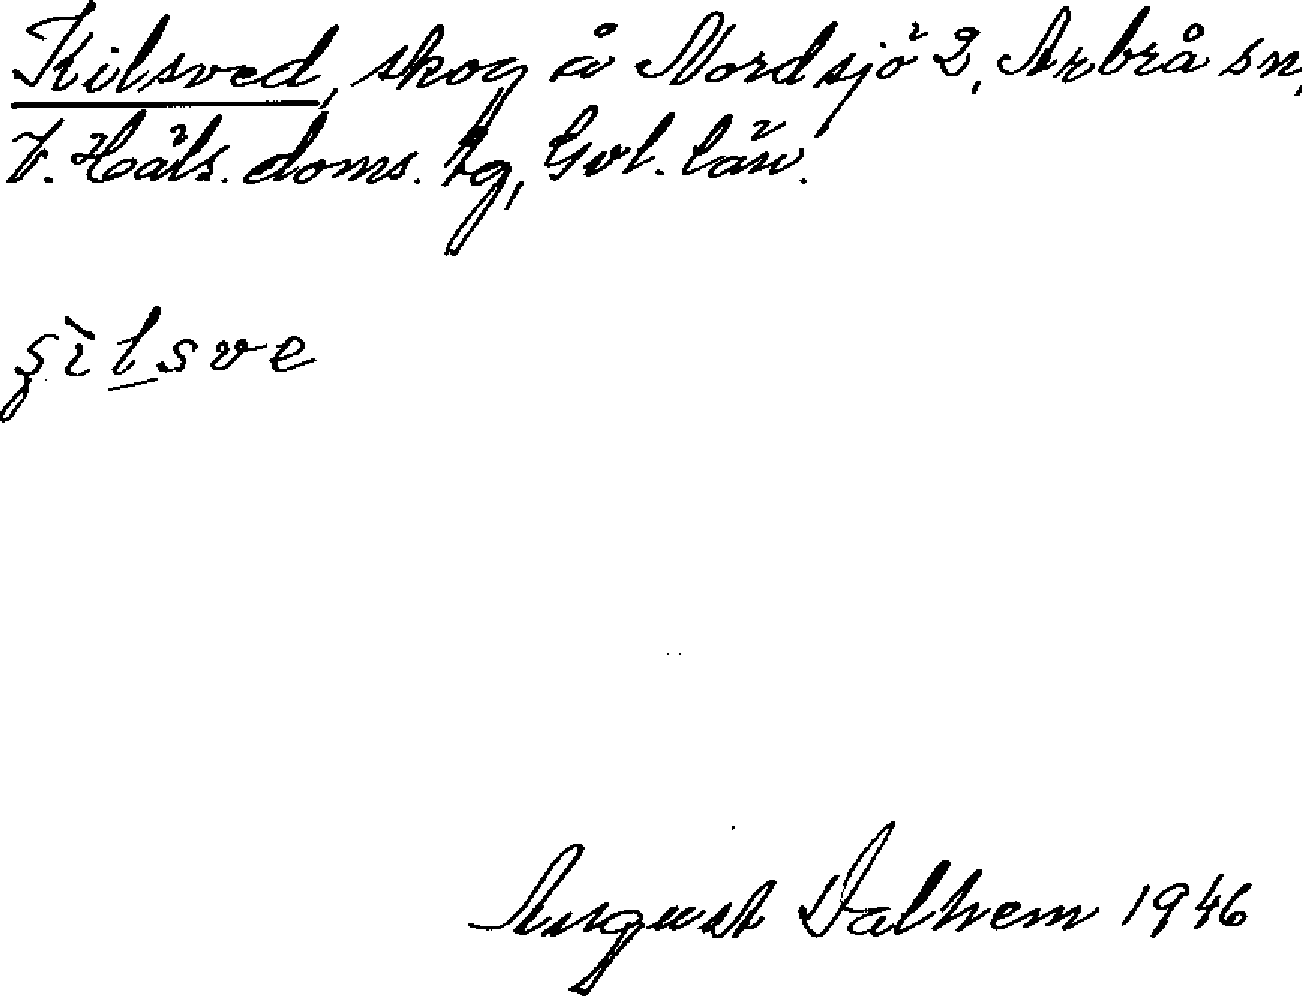 Kilsved, skog å Nordsjö 2, Arbrå sn,
V. Häls. doms. tg, Gvl. län.
ʂìlsve
August Dalhem 1946